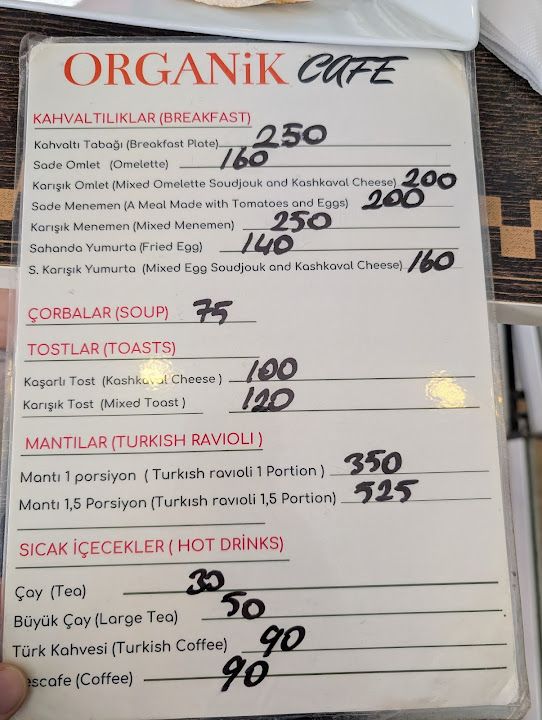 ORGANiK CAFE
KAHVALTILIKLAR (BREAKFAST)
Kahvaltı Tabağı (Breakfast Plate) 250
Sade Omlet (Omelette) 160
Karışık Omlet (Mixed Omelette Soudjouk and Kashkaval Cheese) 200
Sade Menemen (A Meal Made with Tomatoes and Eggs) 200
Karışık Menemen (Mixed Menemen) 250
Sahanda Yumurta (Fried Egg) 140
S. Karışık Yumurta (Mixed Egg Soudjouk and Kashkaval Cheese) 160
ÇORBALAR (SOUP) 75
TOSTLAR (TOASTS)
Kaşarlı Tost (Kashkaval Cheese) 100
Karışık Tost (Mixed Toast) 120
MANTILAR (TURKISH RAVIOLI)
Mantı 1 porsiyon (Turkısh ravıolı 1 Portıon) 350
Mantı 1,5 Porsiyon (Turkısh ravıoli 1,5 Portion) 525
SICAK İÇECEKLER (HOT DRİNKS)
Çay (Tea) 30
Büyük Çay (Large Tea) 50
Türk Kahvesi (Turkish Coffee) 90
escafe (Coffee) 90